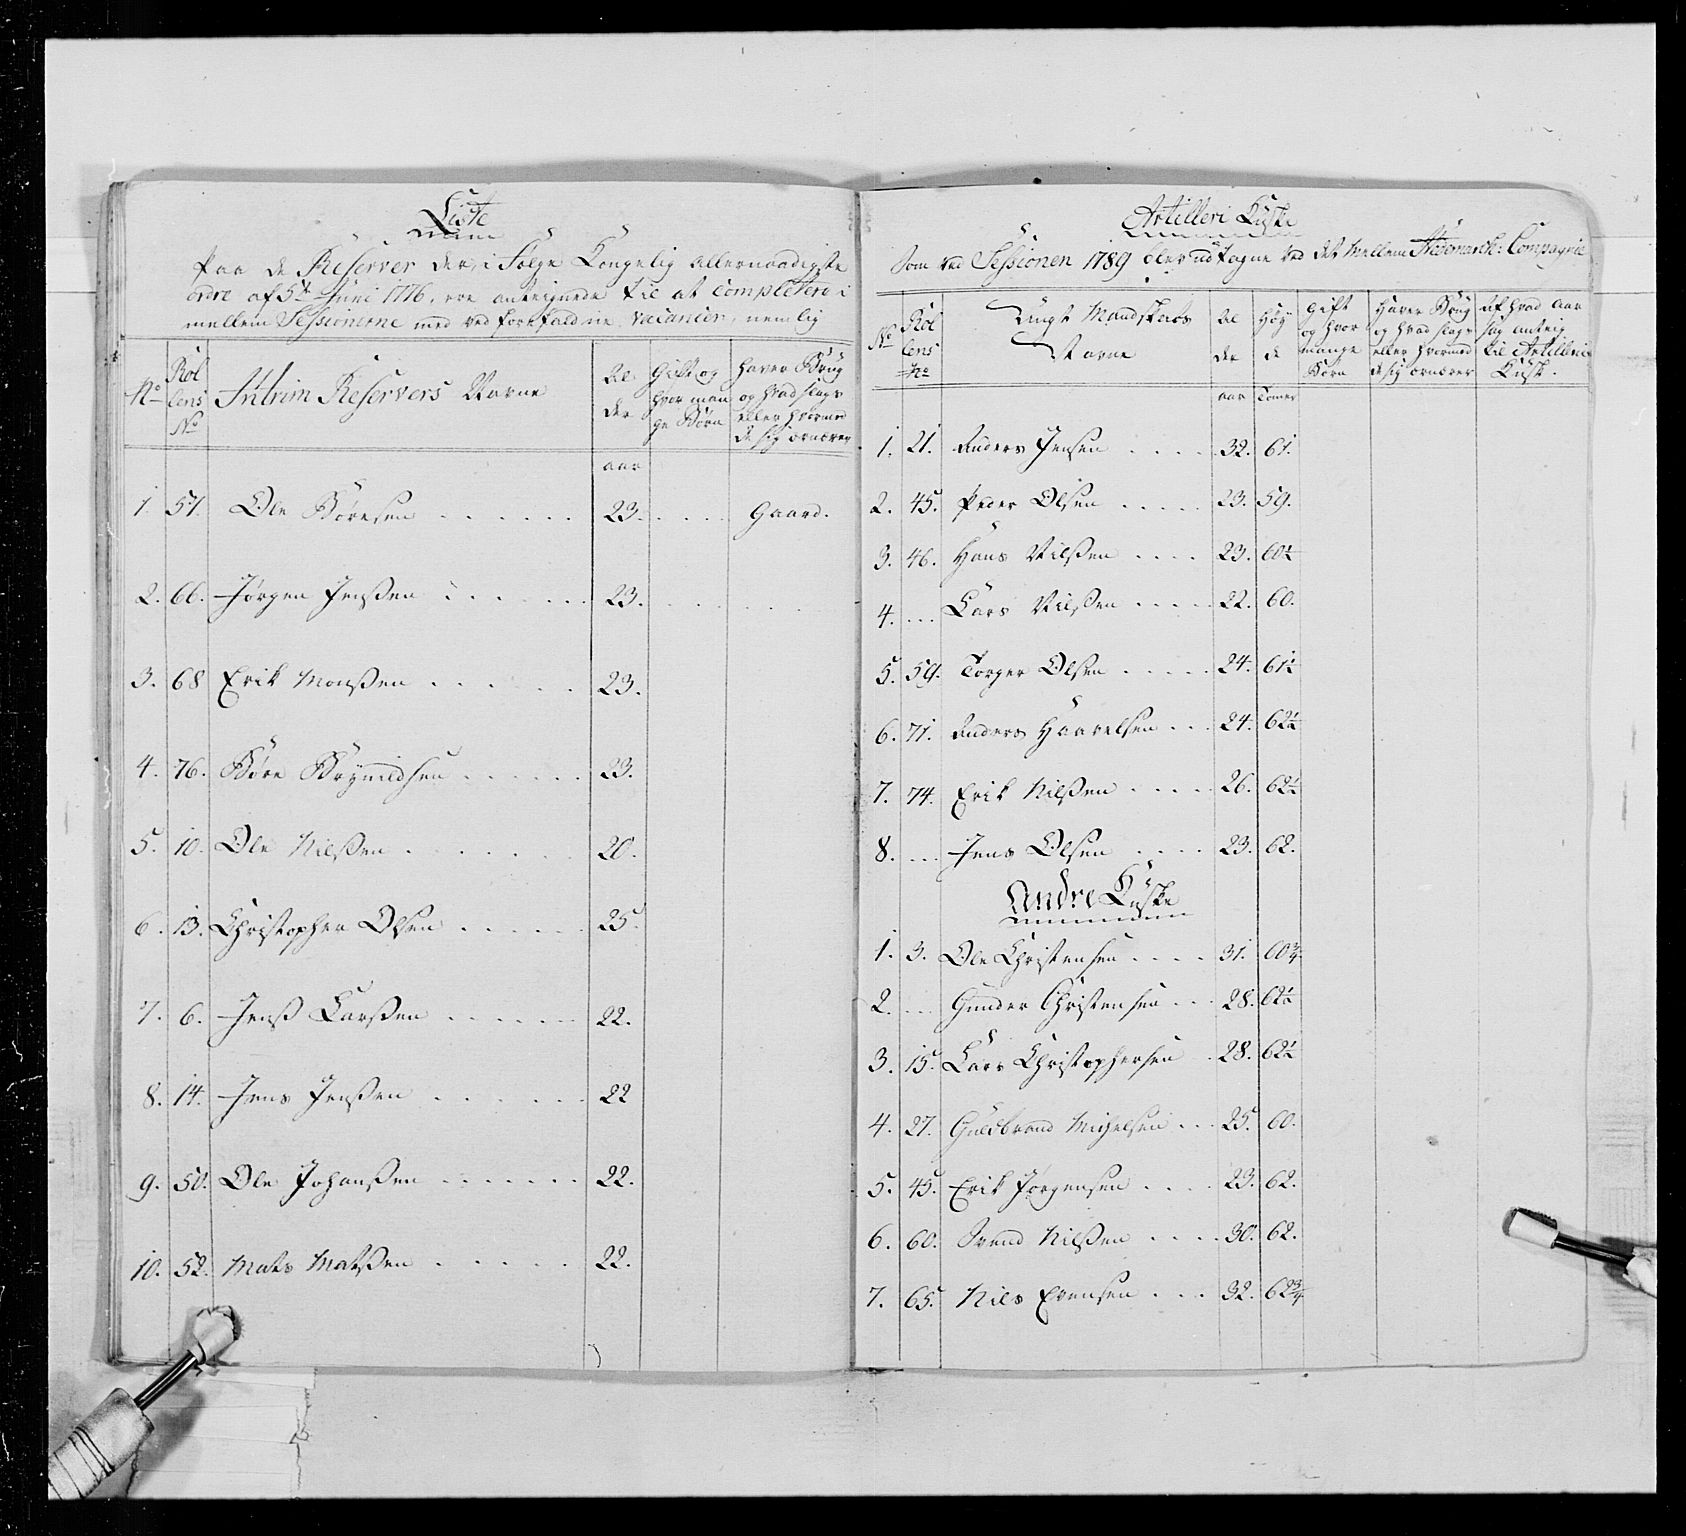 Liste
Paa de Reserver der, i Følge Kongelig allernaadigste
ordre af 5te Juni 1776, ere antegnede til at completere i
mellem Sessionerne med ved forefaldne vacancer, nemlig
No Rollens No Intrim Reservers Navne Alder Gift og hvor mange Børn haver Brug og hvad slags eller hvormed de sig ernærer
aar
1. 57. Ole Børesen 23. Gaard.
2. 66. Jørgen Jensßen 23.
3. 68 Erik Monßen 23.
4. 76. Børe Brynildsen 23.
5. 10. Ole Nilßen 20.
6. 13. Christopher Olsen 25.
7. 6. Jenß Larßen 22.
8. 14. Jens Jenßen 22
9. 50. Ole Johanßen 22.
10. 52. Mats Matßen 22.
Artilleri Kuske
Som ved Sessionen 1789 blev udtagne ved det Mellem Hedemarck: Compagnie
No Rollens No Ungt Mandskabs Navne Alder Høyde Gift og hvor mange Børn Haver Brug og hvad slags eller hvormed de sig ernærer Af hvad Aar sag antegn til Artilleri Kusk.
aar Tomer
1. 21. Anders Jensen 32. 61.
2. 45. Peder Olsen 23. 59.
3. 46. Hans Nilßen 23. 60½
4. ... Lars Nilßen 22. 60.
5. 59. Torger Olsen 24. 61½
6. 71. Anders Haavelsen 24. 62½
7. 74. Erik Nilßen 26. 62½
8. ... Jens Olsen 23. 62.
Andre Kuske
1. 3. Ole Christensen 31. 60¾
2. ... Gunder Christensen 28. 62½
3. 15. Lars Christophersen 28. 62½
4. 27. Guldbrand Migelsen 25. 60.
5. 45. Erik Jørgensen 23. 62.
6. 60. Svend Nilßen 30. 62.
7. 65. Nils Evensen 32. 62¾